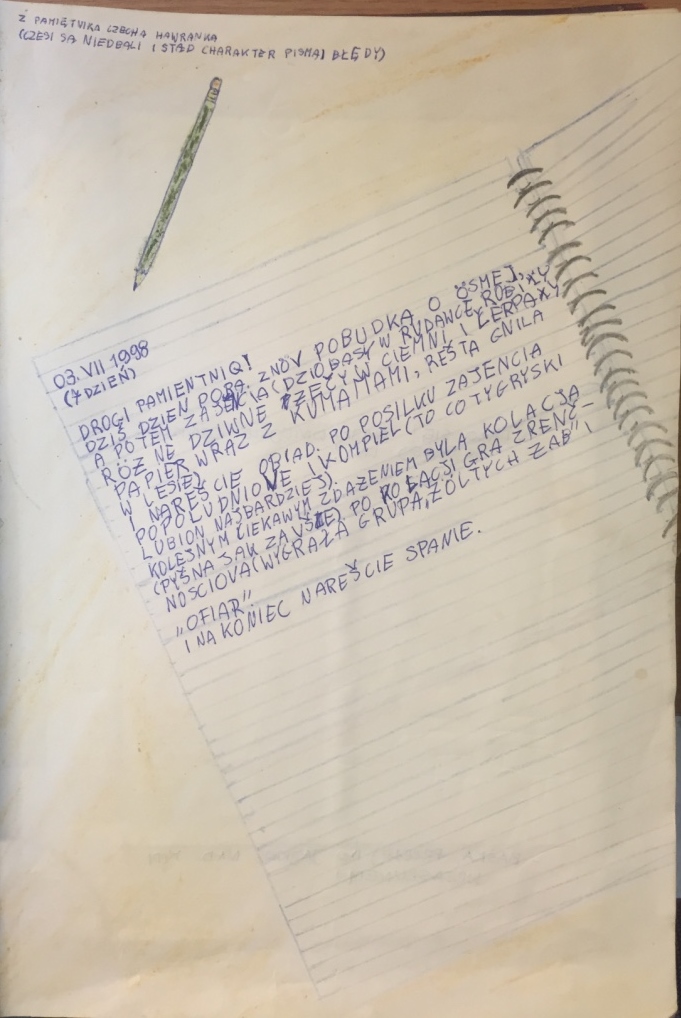 Z PAMIĘTNIKA CZECHA HAWRANKA
(CZESI SĄ NIEDBALI I STĄD CHARAKTER PISMA I BŁĘDY)
03.VII.1998
(7 DZIEŃ)
DROGI PAMIENTNIQ!
DZIŚ DZIEŃ PORA, ZNOV POBUDKA O ÓSMEJ,
A POTEM ZAJĘCIA (DZIOBASY W RUDAWCE ROBIXY
RÓŻNE DZIWNE RZECZY W CIEMNI I CZERPAXY
PAPIER WRAZ Z KUMAMAMI, RESTA GNILA
W LESIE)
I NAREŚCIE OPIAD. PO POSILKU ZAJENCIA
POPOLUDNIOVE I KOMPIEL (TO CO TYGRYSKI
LUBION NAJBARDZIEJ).
KOLEJNYM CIEKAWYM ZDAŻENIEM BYLA KOLACJA
(PYŠNA JAK ZAVŠE) PO KOLACJI GRA ZRENZ-
NOŚCIOVA (WYGRAŁA GRUPA "ŻÓLTYCH ŻAB" I
„OFIAR".
I NA KONIEC NAREŠCIE SPANIE.